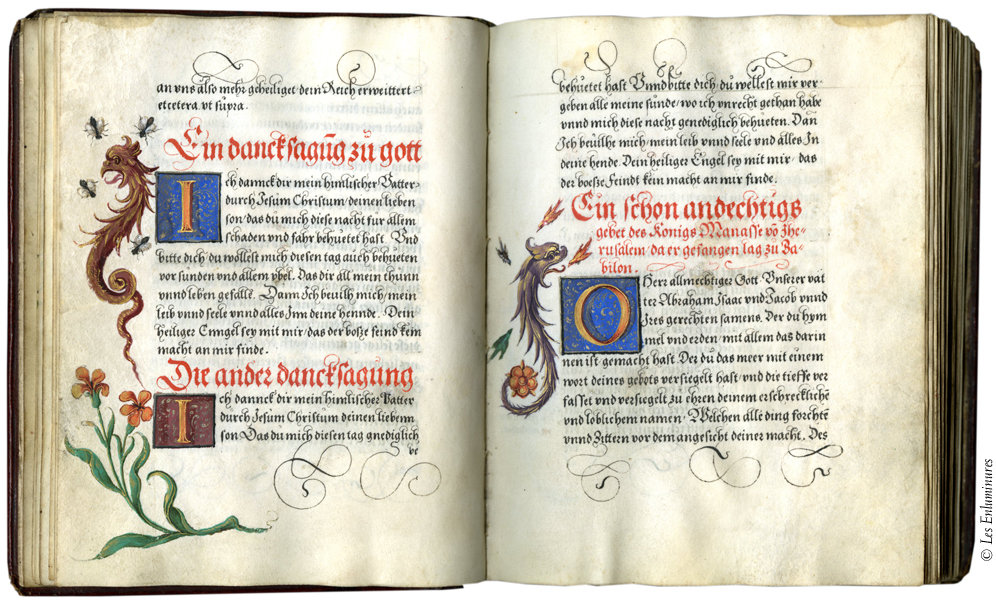 an vns also mehr geheiliget dein Reich erweittert
etcetera vt supra.
Ein dancksagūg zů gott
Ich dannck dir mein himlischer Vatter
durch Jesum Christum deinen lieben
son das du mich diese nacht fur allem
schaden vnd fahr behuetet hast. Vnd
bitte dich du wollest mich diesen tag auch behueten
vor sunden vnd allem vbel. Das dir all mein thunn
vnnd leben gefalle. Dann Ich beuilh mich mein
leib vnnd seele vnnd alles Inn deine hennde. Dein
heiliger Enngel sey mit mir das der boße feind kein
macht an mir finde.
Die ander dancksagung
Ich dannck dir mein himlischer Vatter
durch Jesum Christum deinen liebenn
son Das du mich diesen tag gnediglich
be
behuetet hast Vnnd bitte dich du wellest mir ver-
geben alle meine sunde wo ich vnrecht gethan habe
vnnd mich diese nacht genediglich behueten. Dan
Ich beuilhe mich mein leib vnnd seele vnd alles In
deine hende. Dein heiliger Engel sey mit mir das
der boeße Feindt kein macht an mir finde.
Ein schon andechtigs
gebet des Konigs Manasse võ Jhe-
rusalem da er gefangen lag zu Ba-
bilon.
O Herr allmechtiger Gott Vnserer vat
ter Abraham Isaac vnd Jacob vnnd
Ires gerechten samens. Der du hym
mel vnd erden mit allem das darin
nen ist gemacht hast. Der du das meer mit einem
wort deines gebots versiegelt hast vnd die tieffe ver
fasset vnd versiegelt zu ehren deinem erschrecklichē
vnd loblichem namen. Welchen alle ding forchtē
vnnd Zittern vor dem angesicht deiner macht. Des
© Les Enluminures